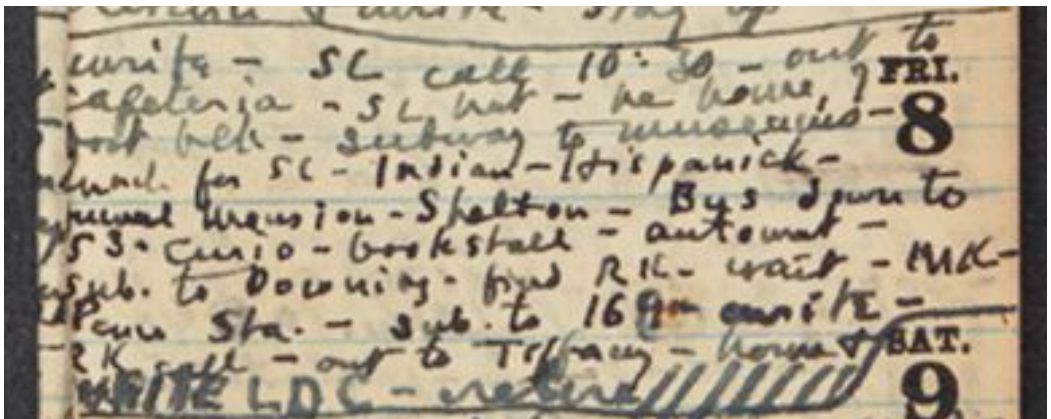 write - stay up
write - SC call 10:30 - out to
cafeteria - SC hut - he home, I FRI.
subway to museums - 8
for SC - Indian - Hispanick -
mansion - Shelton - Bus down to
53 - Curio - bookstall - automat -
sub. to Downing - find RK - wait - MK -
Penn Sta. - sub. to 169 - write -
RK call - out to Tiffany - home & SAT.
WRITE LDC - retire 9